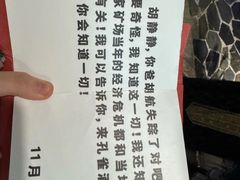 胡静静，你爸胡航失踪了对吧
要奇怪，我知道这一切！我还知
家矿场当年的经济危机都和当
有关！我可以告诉你，来孔雀
你会知道一切！
11月